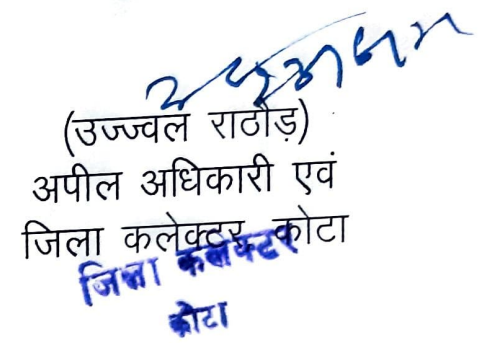 (उज्ज्वल राठौड़)
अपील अधिकारी एवं
जिला कलेक्टर, कोटा
जिला कलक्टर
कोटा